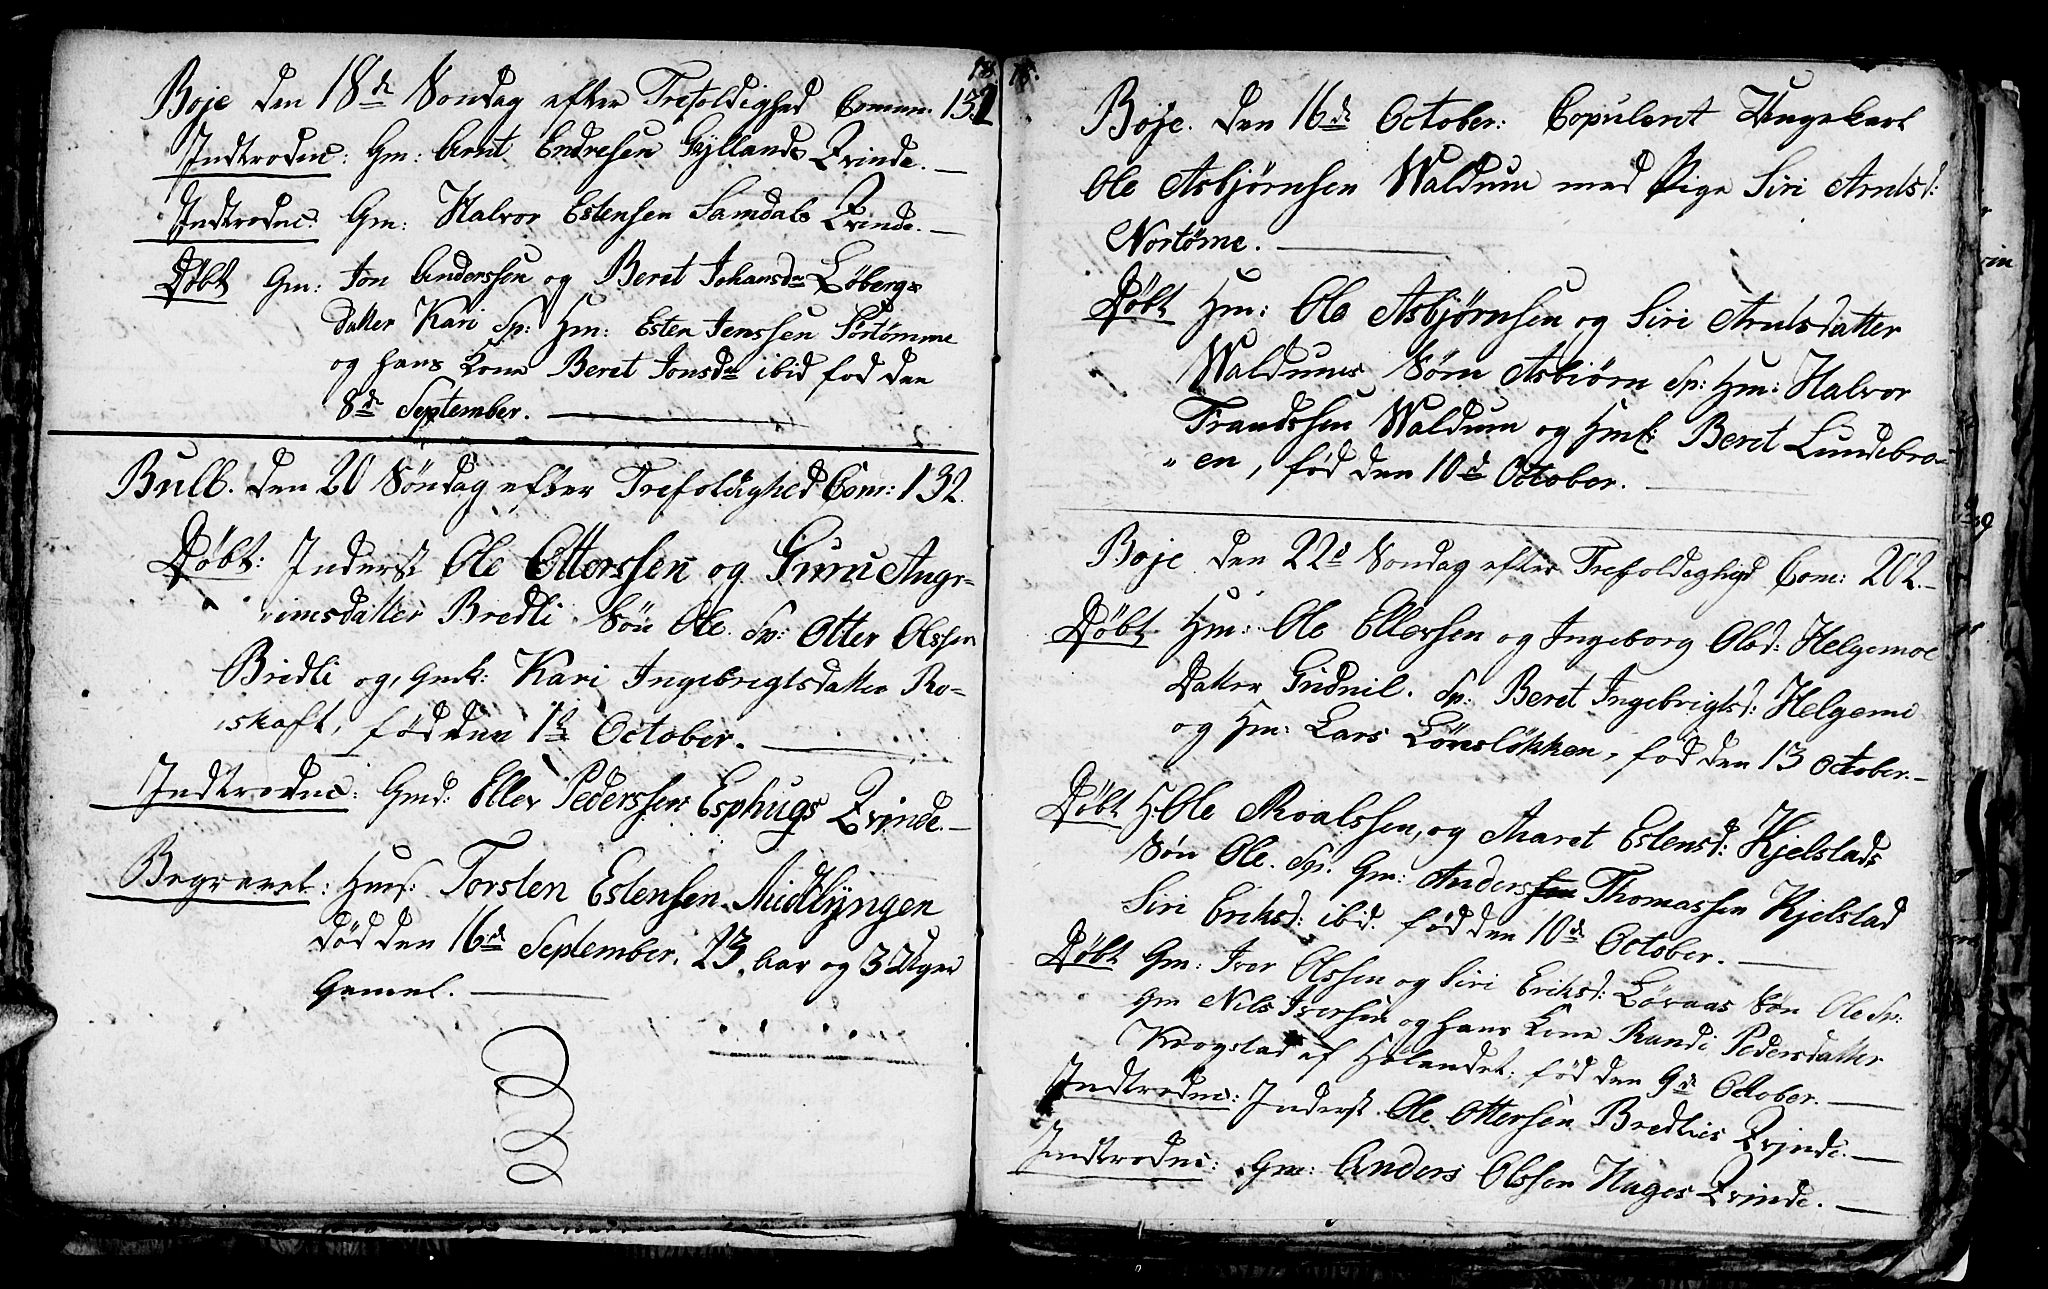 18.
Boje den 18de Søndag efter Trefoldighed Comm. 132
Indtroduc: Gm: Arnt Endresen Gyllands Qvinde. —
Indtroduc: Gm: Halvor Estensen Samdals Qvinde. —
Døbt Gm: Jon Anderssen og Beret Johansdr Løbergs
datter Kari Sp: Hm: Esten Jenssen Sørtømme
og hans Kone Beret Jonsdr ibid fød den
8de September. —
Bulb. den 20 Søndag efter Trefoldighed Com: 132.
Døbt: Inderst Ole Otterssen og Guru Angr-
imsdatter Bredli Søn Ole. Sp: Otter Olssen
Bredli og, Gmk: Kari Ingebrigtsdatter Ro-
skaft, fød den 1de October. —
Indtroduc: Gmd: Eller Pederssens Esphugs Qvinde. —
Begravet: Hms: Torsten Estensen Midtlyngen
død den 16de September. 23 Aar og 3 Uger
Gamel. —
18.
Boje. den 16de October: Copuleret Ungekarl
Ole Asbjørnsen Waldum med Pige Siri Arntsd:
Nortømme. —
Døbt Hm: Ole Asbjørnsen og Siri Arntsdatter
Waldums Søn Asbiørn Sp: Hm: Halvor
Trandssen Waldum og Hmk: Beret Lundebro-
en, fød den 10de October. —
Boje den 22d Søndag efter Trefoldighed Com: 202. —
Døbt. Hm: Ole Ellevsen og Ingeborg Olsd: Helgemoe
Datter Gidnil. Sp: Beret Ingebrigtsd: Helgeme
og Hm: Lars Lønsløkken, fød den 13 October. —
Døbt H: Ole Roalssen, og Maret Estensd: Kjelstads
Søn Ole. Sp. Gm: Anderssen Thomassen Kjelstad
Siri Eriksd: ibid. fød den 10de October. —
Døbt Gm: Iver Olssen og Siri Eriksd: Løvaas Søn Ole Sp:
Gm Nils Iversen og hans Kone Randi Pedersdatter
Krogstad af Hølandet: fød den 9de October. —
Indtroduc: Inderst Ole Ottersen Bredlies Qvinde. —
Indtroduc: Gm: Anders Olssen Hages Qvinde. —